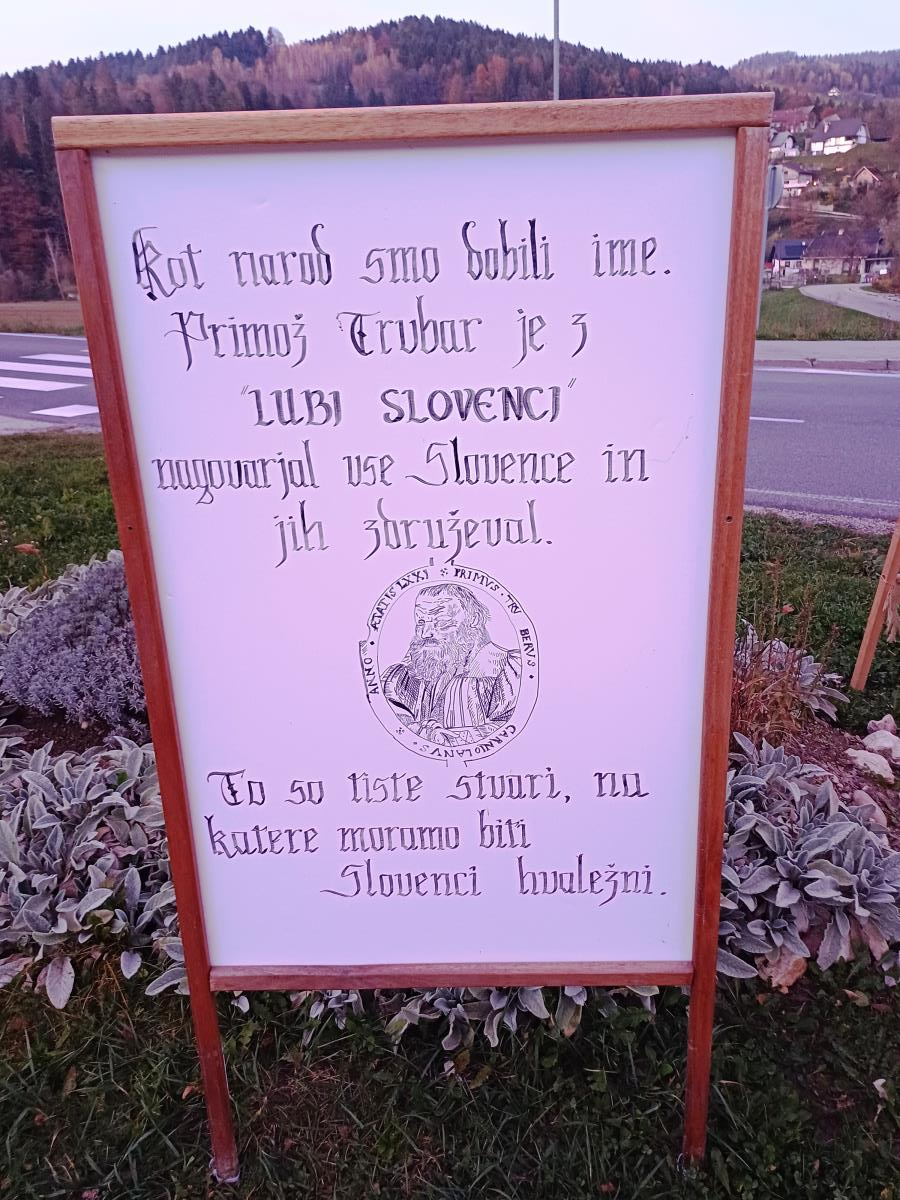 Kot narod smo dobili ime.
Primož Trubar je z
"LUBI SLOVENCI"
nagovarjal vse Slovence in
jih združeval.
ANNO • ÆTATIS LXXI • PRIMVS • TRV BERVS • CARNIOLANVS •
To so tiste stvari, na
katere moramo biti
Slovenci hvaležni.